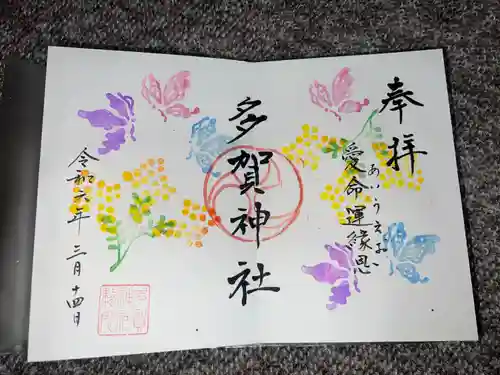 奉拝
愛命運縁恩
あいうえお
多賀神社
令和六年三月十四日